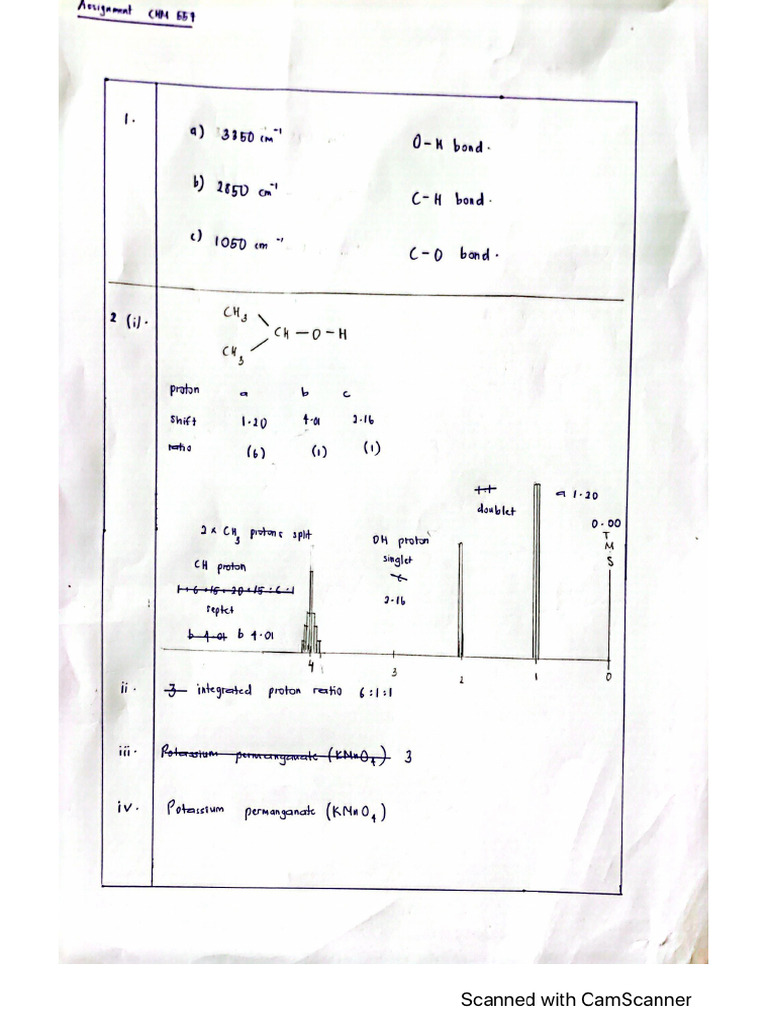 Assignment CHM 557
1.
a) 3350 cm⁻¹ O-H bond.
b) 2850 cm⁻¹ C-H bond.
c) 1050 cm⁻¹ C-O bond.
2 (i).
CH₃
CH-O-H
CH₃
proton a b c
shift 1.20 4.01 2.16
ratio (6) (1) (1)
a 1.20
doublet
0.00
TMS
2 x CH₃ protons split
OH proton
CH proton
singlet
1+6+15+20+15:6:1
2.16
septet
b 4.01 b 4.01
4 3 2 1 0
ii. 3 integrated proton ratio 6:1:1
iii. Potassium permanganate (KMnO₄) 3
iv. Potassium permanganate (KMnO₄)
Scanned with CamScanner